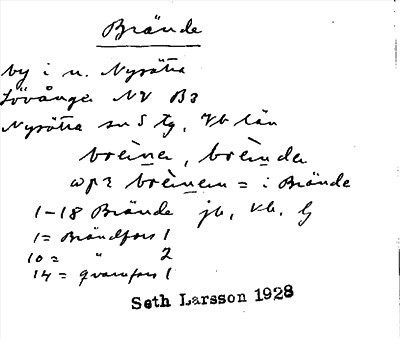 Brände
by i n. Nysätra
Lövånger NV B3
Nysätra sn S tg, Vb län
brèina, brèinda
brèinem = i Brände
1-18 Brände jb, kb, lj
1= Brändfors 1
10= " 2
14= Qvarnfors 1
Seth Larsson 1928